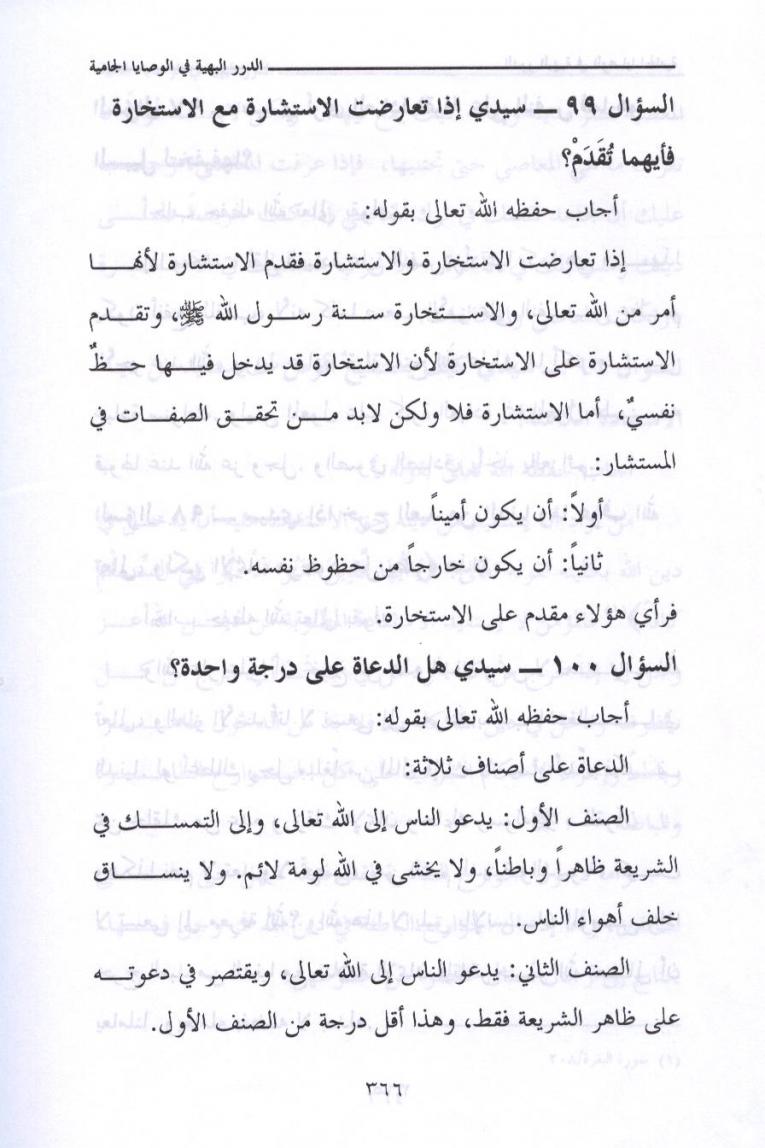 الدرر البهية في الوصايا الجامية
السؤال ٩٩ ـــ سيدي إذا تعارضت الاستشارة مع الاستخارة
فأيهما تُقَدَمْ؟
أجاب حفظه الله تعالى بقوله:
إذا تعارضت الاستخارة والاستشارة فقدم الاستشارة لأنهـــا
أمر من الله تعالى، والاستـــخارة ســـنة رســـول الله ﷺ، وتقـــدم
الاستشارة على الاستخارة لأن الاستخارة قد يدخل فيـــها حـــظٌ
نفسيٌ، أما الاستشارة فلا ولكن لابد مـــن تحقـــق الصفـــات في
المستشار:
أولاً: أن يكون أميناً
ثانياً: أن يكون خارجاً من حظوظ نفسه.
فرأي هؤلاء مقدم على الاستخارة.
السؤال ١٠٠ ـــ سيدي هل الدعاة على درجة واحدة؟
أجاب حفظه الله تعالى بقوله:
الدعاة على أصناف ثلاثة:
الصنف الأول: يدعو الناس إلى الله تعالى، وإلى التمســـك في
الشريعة ظاهراً وباطناً، ولا يخشى في الله لومة لائم. ولا ينســـاق
خلف أهواء الناس.
الصنف الثاني: يدعو الناس إلى الله تعالى، ويقتصر في دعوتـــه
على ظاهر الشريعة فقط، وهذا أقل درجة من الصنف الأول.
٣٦٦